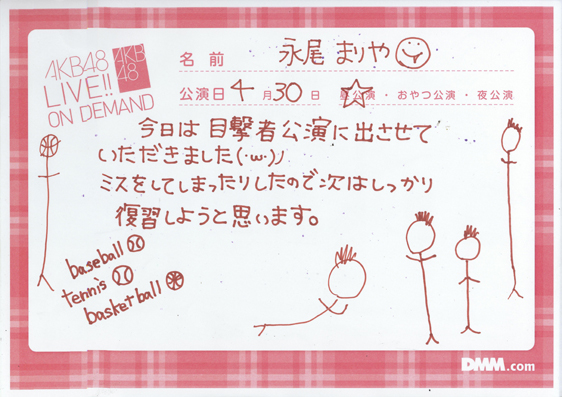 AKB48
LIVE!!
ON DEMAND
AKB
48
名前 永尾 まりや
公演日 4月30日 ・おやつ公演・夜公演
今日は目撃者公演に出させて
いただきました(・ω・)ノ
ミスをしてしまったりしたので次はしっかり
復習しようと思います。
baseball
tennis
basketball
DMM.com